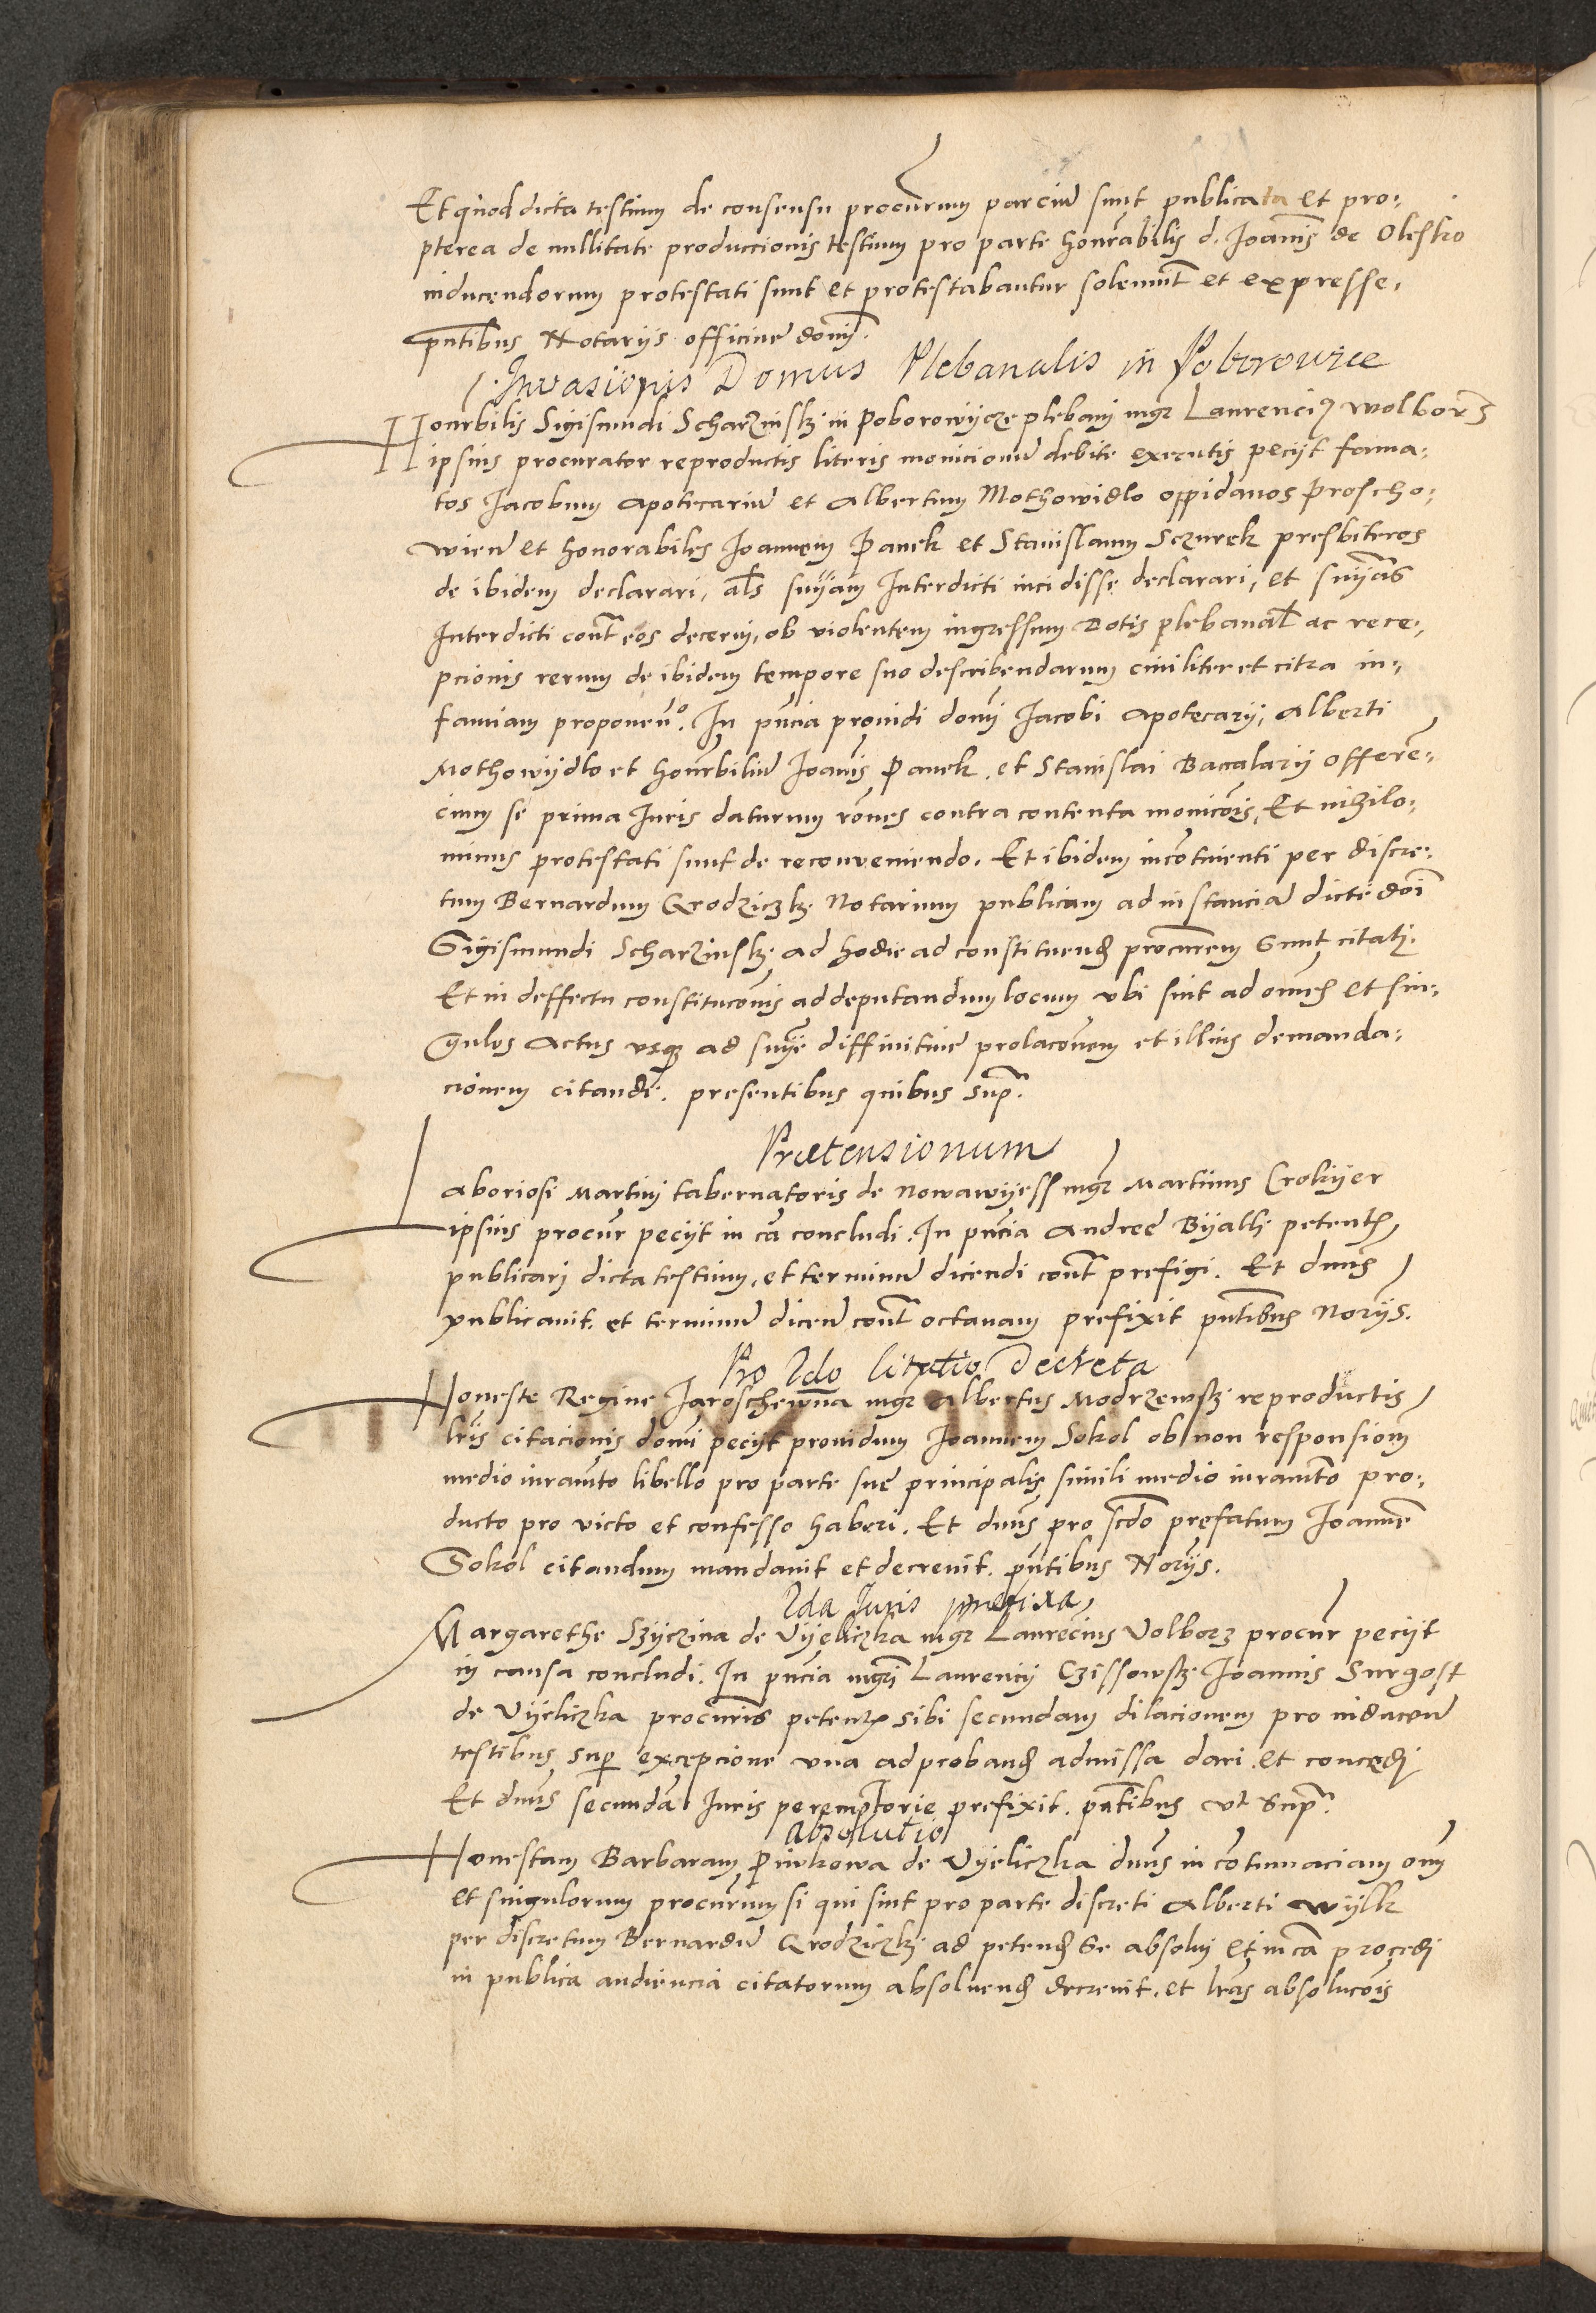 Et quod dicta testium de consensu procurum parcium sunt publicata et pro-
pterea de nullitate produccionis testium pro parte honrabilis d. Joannis de Olesko
inducendorum protestati sunt et protestabantur solemnt et expresse,
pntibus Notarys officine domy.
Invasionis Domus Plebanalis in Poborowice
Honrbilis Sigismundi Scharzinsky in Poborowycze plebani mgr Laurencius Wolborz
ipsius procurator reproductis literis monicionum debite executis pecyt fama-
tos Jacobum Apotecarium et Albertum Mothowidlo oppidanos Proscho-
wien et honorabiles Joannem Panek et Stanislaum Sczurek presbiteros
de ibidem declarari, als snyam Interdicti incidisse declarari, et snyas
Interdicti cont eos decerni, ob violentem ingressum Dotis plebanal ac rece-
pcionis rerum de ibidem tempore suo describendarum civiliter et citra in-
famiam proponen. In pncia providi domi Jacobi Apotecary, Alberti
Mothowydlo et honrbilium Joanis Panek et Stanislai Baccalary offeren-
cium se prima Juris daturum rones contra contenta monicois, Et nihilo-
minus protestati sunt de reconveniendo. Et ibidem incontinenti per discre-
tum Bernardum Grodziczky Notarium publicum ad instancia dicti doi
Sigismundi Scharzinsky ad hodie ad constituend procurem sunt citati.
Et in deffectu constituconis ad deputandum locum ubi sint ad omes et sin-
gulos Actus usque ad snye diffinitive prolaconem et illius demanda-
cionem citandi. presentibus quibus supr.
Praetensionum
Laboriosi Martini tabernatoris de Nowawyess mgr Martinus Crokyer
ipsius procur pecyt in ca concludi. In pncia Andree Byalk petentis
publicari dicta testium, et terminum dicendi cont prefigi. Et dnus
publicavit et terminum dicen cont octavam prefixit pntibus Norys.
Pro 2do Citatio Decreta
Honeste Regine Jaroschewna mgr Albertus Modrzewsky reproductis
lris citacionis domi pecyt providum Joannem Sokol ob non responsiom
medio iuramto libello pro parte sue principalis simili medio iuramto pro-
ducto pro victo et confesso haberi. Et dnus pro scdo prefatum Joanne
Sokol citandum mandavit et decrevit. pntibus Norys.
2da Juris praefixa
Margarethe Szyczina de Vyeliczka mgr Laurecius Volborz procur pecyt
in causa concludi. In pncia mgri Laurency Czissowsky Joannis Surgost
de Vyeliczka procuris petentis sibi secundam dilacionem pro inducen
testibus super excepcione una ad proband admissa dari et concedi
Et dnus secunda Juris peremptorie prefixit. pntibus ut supr.
Absolutio
Honestam Barbaram Pinkowa de Vyeliczka dnus in contumaciam oim
et singulorum procurum si qui sint pro parte discreti Alberti Wylk
per discretum Bernardu Grodziczky ad petend se absolvi et in ca procedi
in publica audiencia citatorum absolvend decrevit, et lras absolucois